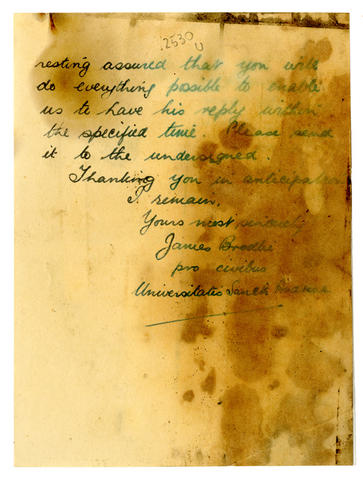 .2530
U
resting assured that you will
do everything posible to enable
us to have his reply within
the specified time. Please send
it to the undersigned.
Thanking you in anticipation
I remain,
Yours most sincerely
James Brodie
pro civibus
Universitatis Sancti